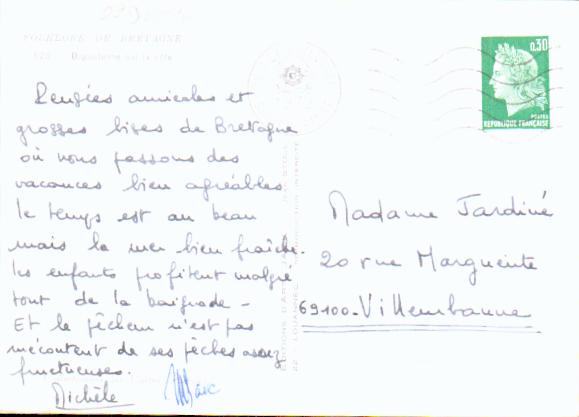 FOLKLORE DE BRETAGNE
Pensées amicales et
grosses bises de Bretagne
où nous passons des
vacances bien agréables.
Le temps est au beau
mais la mer bien fraîche.
les enfants profitent malgré
tout de la baignade -
Et le pêcheur n'est pas
mécontent de ses pêches assez
fructueuses.
Michèle
Marc
0,30
POSTES
REPUBLIQUE FRANÇAISE
Madame Jardiné
20 rue Marguerite
69100 - Villeurbanne